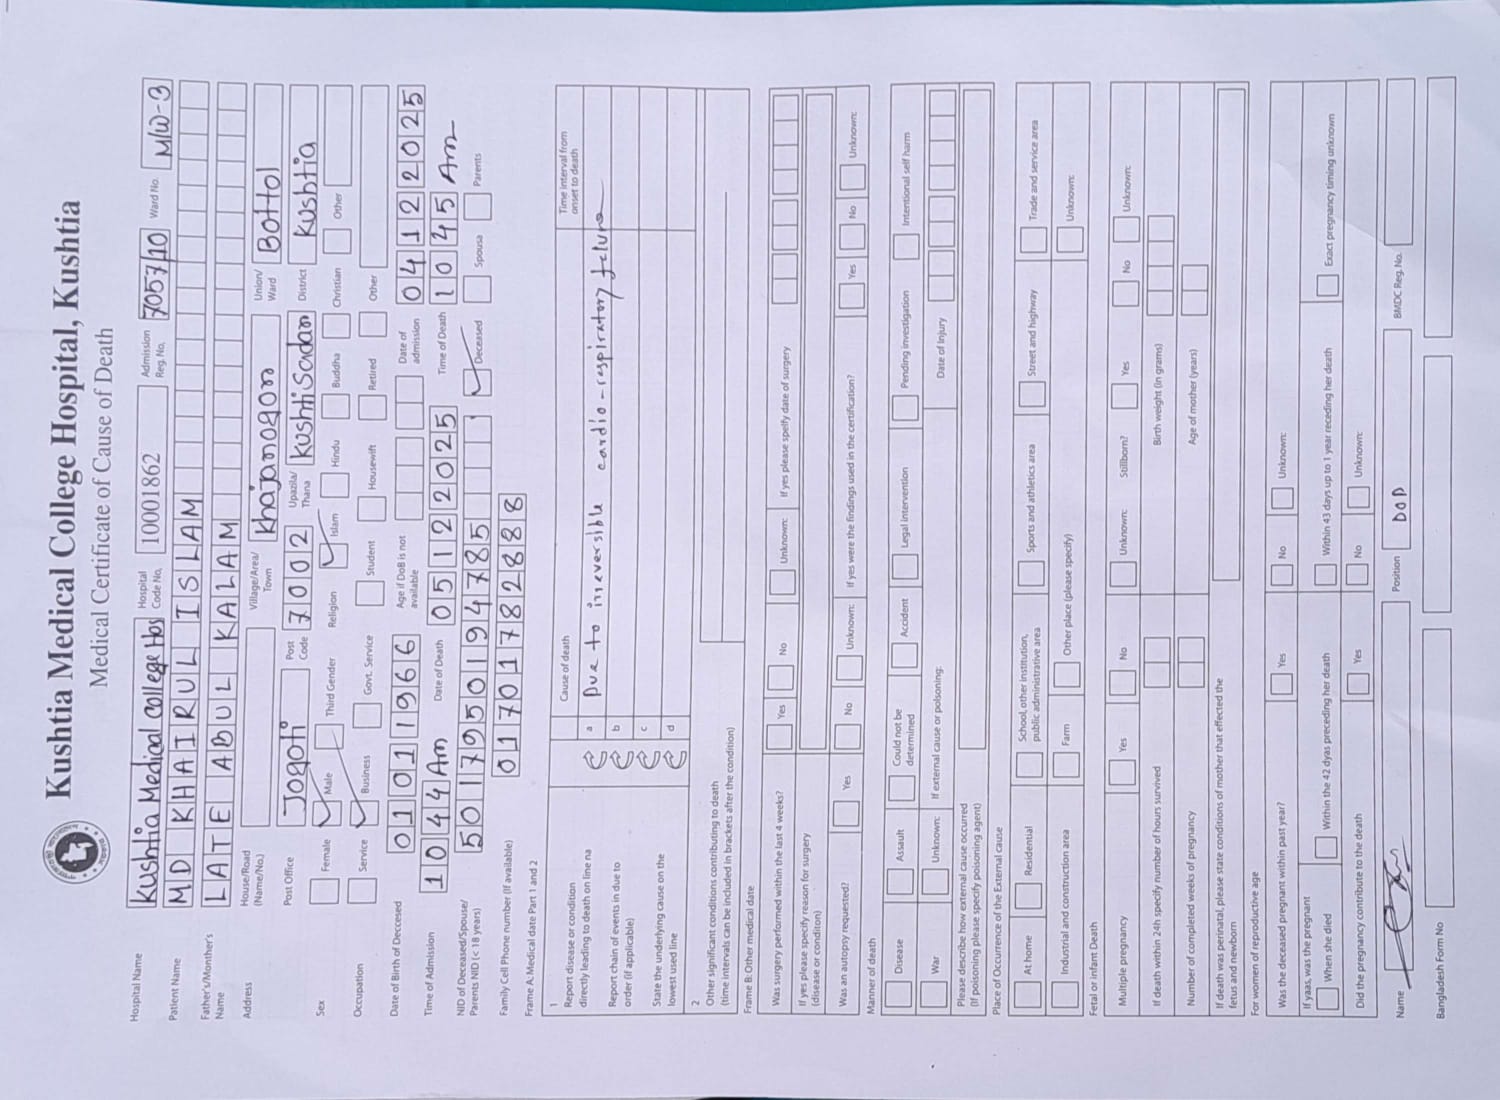 Kushtia Medical College Hospital, Kushtia
Medical Certificate of Cause of Death
Hospital Name Kushtia Medical College Hos Hospital Code No, 10001862 Admission Reg. No. 7057/10 Ward No. M/W-3
Patient Name MD KHAIRUL ISLAM
Father's/Monther's Name LATE ABUL KALAM
Address House/Road (Name/No.) Village/Area/ Town Khajanogor Union/ Ward Bottol
Post Office Jogoti Post Code 7002 Upazila/ Thana Kushti Sadar District Kushtia
Sex Female Male Third Gender Religion Islam Hindu Buddha Christian Other
Occupation Service Business Govt. Service Student Housewift Retired Other
Date of Birth of Deccesed 01011966 Age if DoB is not available Date of admission 04122025
Time of Admission 1044 Am Date of Death 05122025 Time of Death 1045 Am
NID of Deceased/Spouse/ Parents NID (< 18 years) 5017950194785 Deceased Spousa Parents
Family Cell Phone number (If available) 01701782888
Frame A: Medical date Part 1 and 2
1 Cause of death Time interval from onset to death
Report disease or condition directly leading to death on line na a Due to irreversible cardio-respiratory felure
Report chain of events in due to order (if applicable) b
c
State the underlying cause on the lowest used line d
2 Other significant conditions contributing to death
(time intervals can be included in brackets after the condition)
Frame B: Other medical date
Was surgery performed within the last 4 weeks? Yes No Unknown: If yes please speify date of surgery
If yes please specify reason for surgery (disease or conditon)
Was an autopsy requested? Yes No Unknown: If yes were the findings used in the certification? Yes No Unknown:
Manner of death
Disease Assault Could not be determined Accident Legal intervention Pending investigation Intentional self harm
War Unknown: If external cause or poisoning: Date of Injury
Please describe how external cause occurred
(If poisoning please specify poisoning agent)
Place of Occurrence of the External cause
At home Residential School, other Institution, public administrative area Sports and athletics area Street and highway Trade and service area
Industrial and construction area Farm Other place (please specify) Unknown:
Fetal or infant Death
Multiple pregnancy Yes No Unknown: Stillborn? Yes No Unknown:
If death within 24h specify number of hours survived Birth weight (in grams)
Number of completed weeks of pregnancy Age of mother (years)
If death was perinatal, please state conditions of mother that effected the fetus and newborn
For women of reproductive age
Was the deceased pregnant within past year? Yes No Unknown:
If yaas, was the pregnant
When she died Within the 42 dyas preceding her death Within 43 days up to 1 year receding her death Exact pregnancy timing unknown
Did the pregnancy contribute to the death Yes No Unknown:
Name Position DOD BMDC Reg. No.
Bangladesh Form No